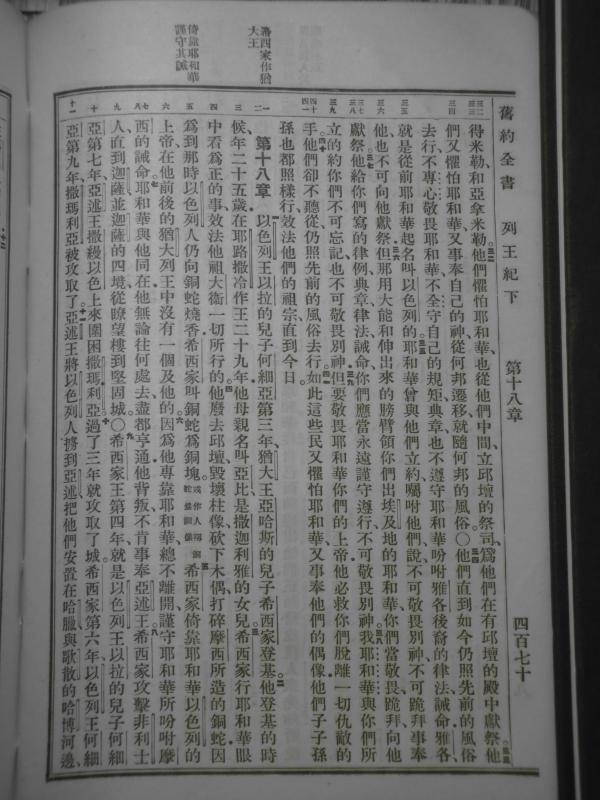 舊約全書 列王紀下 第十八章 四百七十
得米勒和亞拿米勒他們懼怕耶和華也從他們中間立邱壇的祭司爲他們在有邱壇的殿中獻祭他
們又懼怕耶和華又事奉自己的神從何邦遷移就隨何邦的風俗〇他們直到如今仍照先前的風俗
去行不專心敬畏耶和華不全守自己的規矩典章也不遵守耶和華吩咐雅各後裔的律法誡命雅各
就是從前耶和華起名叫以色列的耶和華曾與他們立約囑咐他們說不可敬畏別神不可跪拜事奉
他也不可向他獻祭但那用大能和伸出來的膀臂領你們出埃及地的耶和華你們當敬畏跪拜向他
獻祭他給你們寫的律例典章律法誡命你們應當永遠謹守遵行不可敬畏別神我耶和華與你們所
立的約你們不可忘記也不可敬畏別神但要敬畏耶和華你們的上帝他必救你們脫離一切仇敵的
手他們卻不聽從仍照先前的風俗去行如此這些民又懼怕耶和華又事奉他們的偶像他們子子孫
孫也都照樣行效法他們的祖宗直到今日
第十八章 以色列王以拉的兒子何細亞第三年猶大王亞哈斯的兒子希西家登基他登基的時
候年二十五歲在耶路撒冷作王二十九年他母親名叫亞比是撒迦利雅的女兒希西家行耶和華眼
中看爲正的事效法他祖大衛一切所行的他廢去邱壇毀壞柱像砍下木偶打碎摩西所造的銅蛇因
爲到那時以色列人仍向銅蛇燒香希西家叫銅蛇爲銅塊 希西家倚靠耶和華以色列的
上帝在他前後的猶大列王中沒有一個及他的因爲他專靠耶和華總不離開謹守耶和華所吩咐摩
西的誡命耶和華與他同在他無論往何處去盡都亨通他背叛不肯事奉亞述王希西家攻擊非利士
人直到迦薩並迦薩的四境從瞭望樓到堅固城〇希西家王第四年就是以色列王以拉的兒子何細
亞第七年亞述王撒縵以色上來圍困撒瑪利亞過了三年就攻取了城希西家第六年以色列王何細
亞第九年撒瑪利亞被攻取了亞述王將以色列人擄到亞述把他們安置在哈臘與歌散的哈博河邊
希西家作猶
大王
倚靠耶和華
謹守其誡